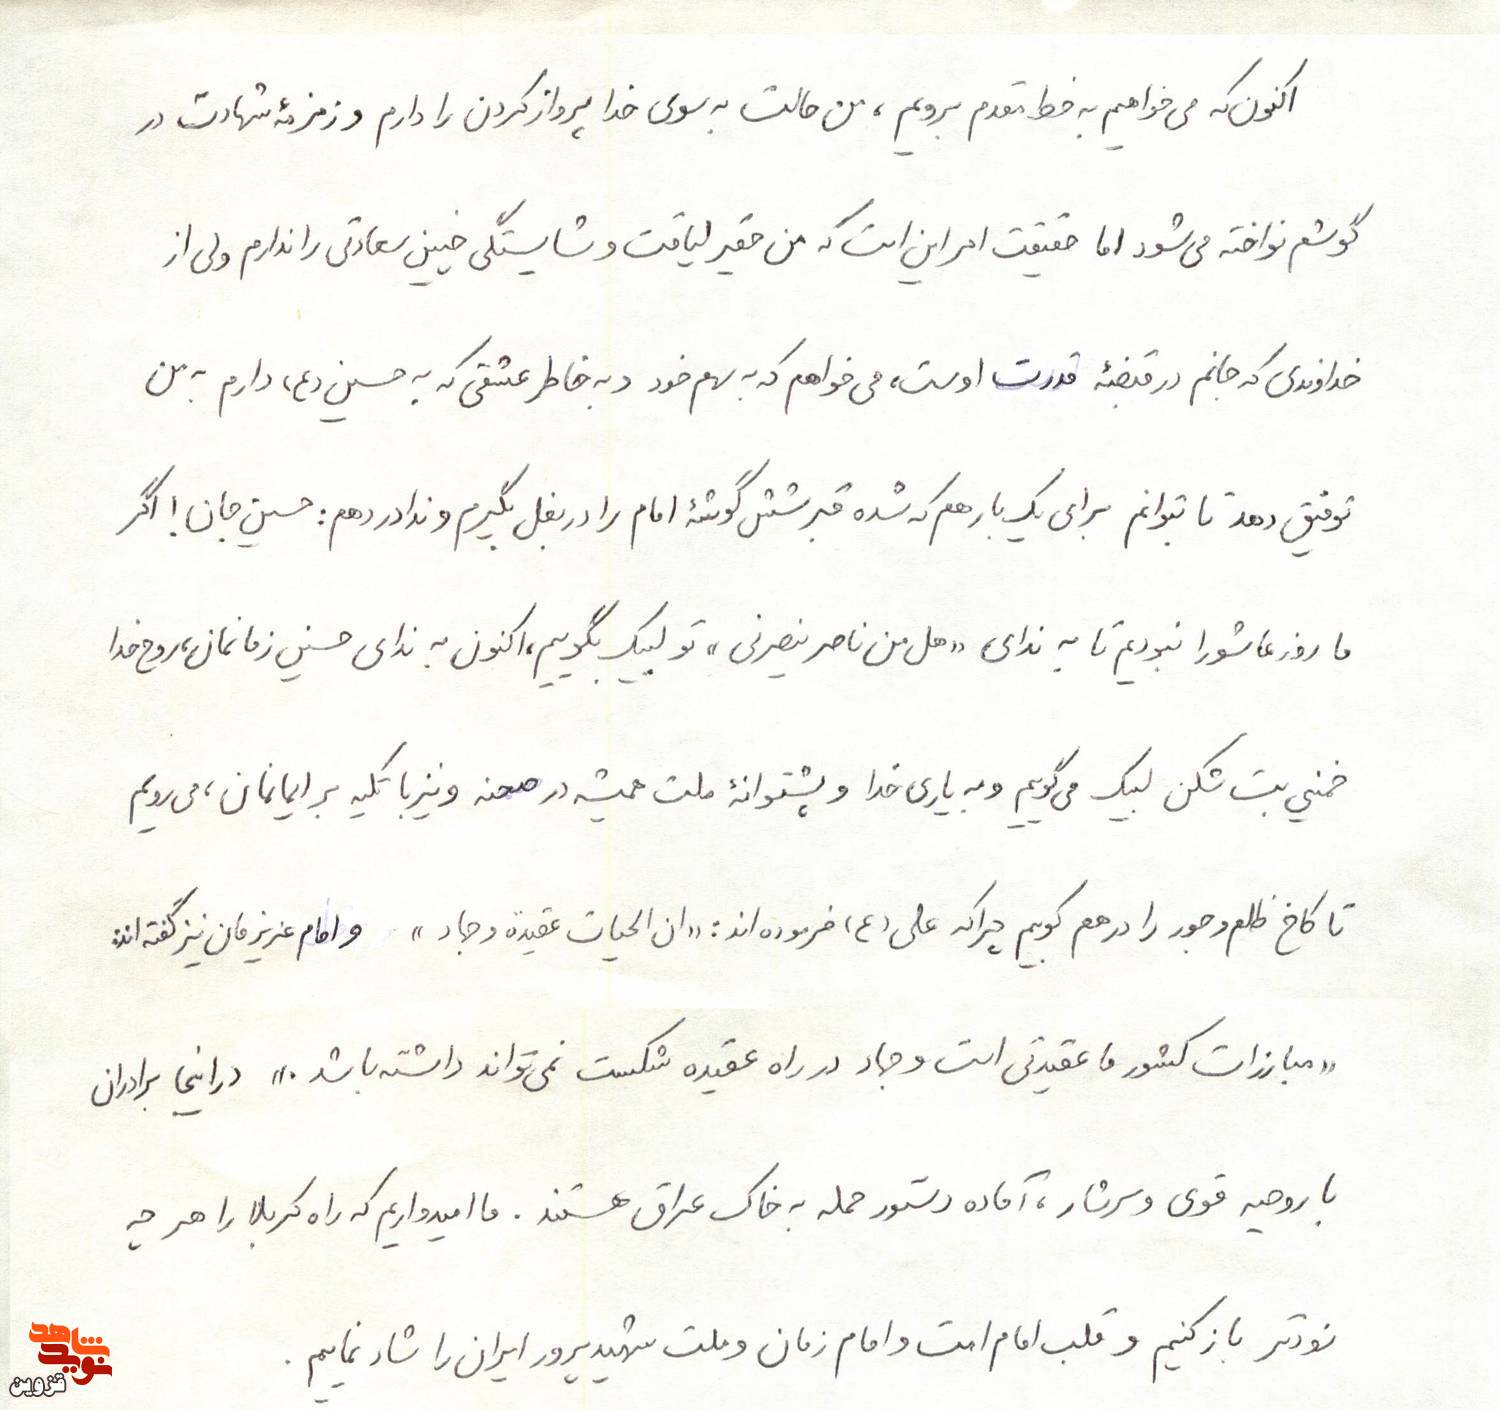 اکنون که می‌خواهیم به خط مقدم برویم ، من حالت به سوی خدا پرواز کردن را دارم و زمزمهٔ شهادت در
گوشم نواخته می‌شود اما حقیقت امر این است که من حقیر لیاقت و شایستگی چنین سعادتی را ندارم ولی از
خداوندی که جانم در قبضهٔ قدرت اوست، می‌خواهم که به سهم خود و به خاطر عشقی که به حسین (ع) دارم به من
توفیق دهد تا بتوانم برای یک بار هم که شده قبر شش گوشهٔ امام را در بغل بگیرم و ندا در دهم : حسین جان ! اگر
ما روز عاشورا نبودیم تا به ندای «هل من ناصر ینصرنی» تو لبیک بگوییم، اکنون به ندای حسین زمانمان، روح خدا
خمینی بت شکن لبیک می‌گوییم و به یاری خدا و پشتوانهٔ ملت همیشه در صحنه و نیز با تکیه بر ایمانمان ، می‌رویم
تا کاخ ظلم و جور را در هم کوبیم چرا که علی (ع) فرموده‌اند : «ان الحیات عقیدة و جهاد » و امام عزیزمان نیز گفته‌اند:
«مبارزات کشور ما عقیدتی است و جهاد در راه عقیده شکست نمی‌تواند داشته باشد .» در اینجا برادران
با روحیه قوی و سرشار ، آماده دستور حمله به خاک عراق هستند . ما امیدواریم که راه کربلا را هر چه
زودتر باز کنیم و قلب امام امت و امام زمان و ملت شهید پرور ایران را شاد نماییم .
نوید شاهد
قزوین